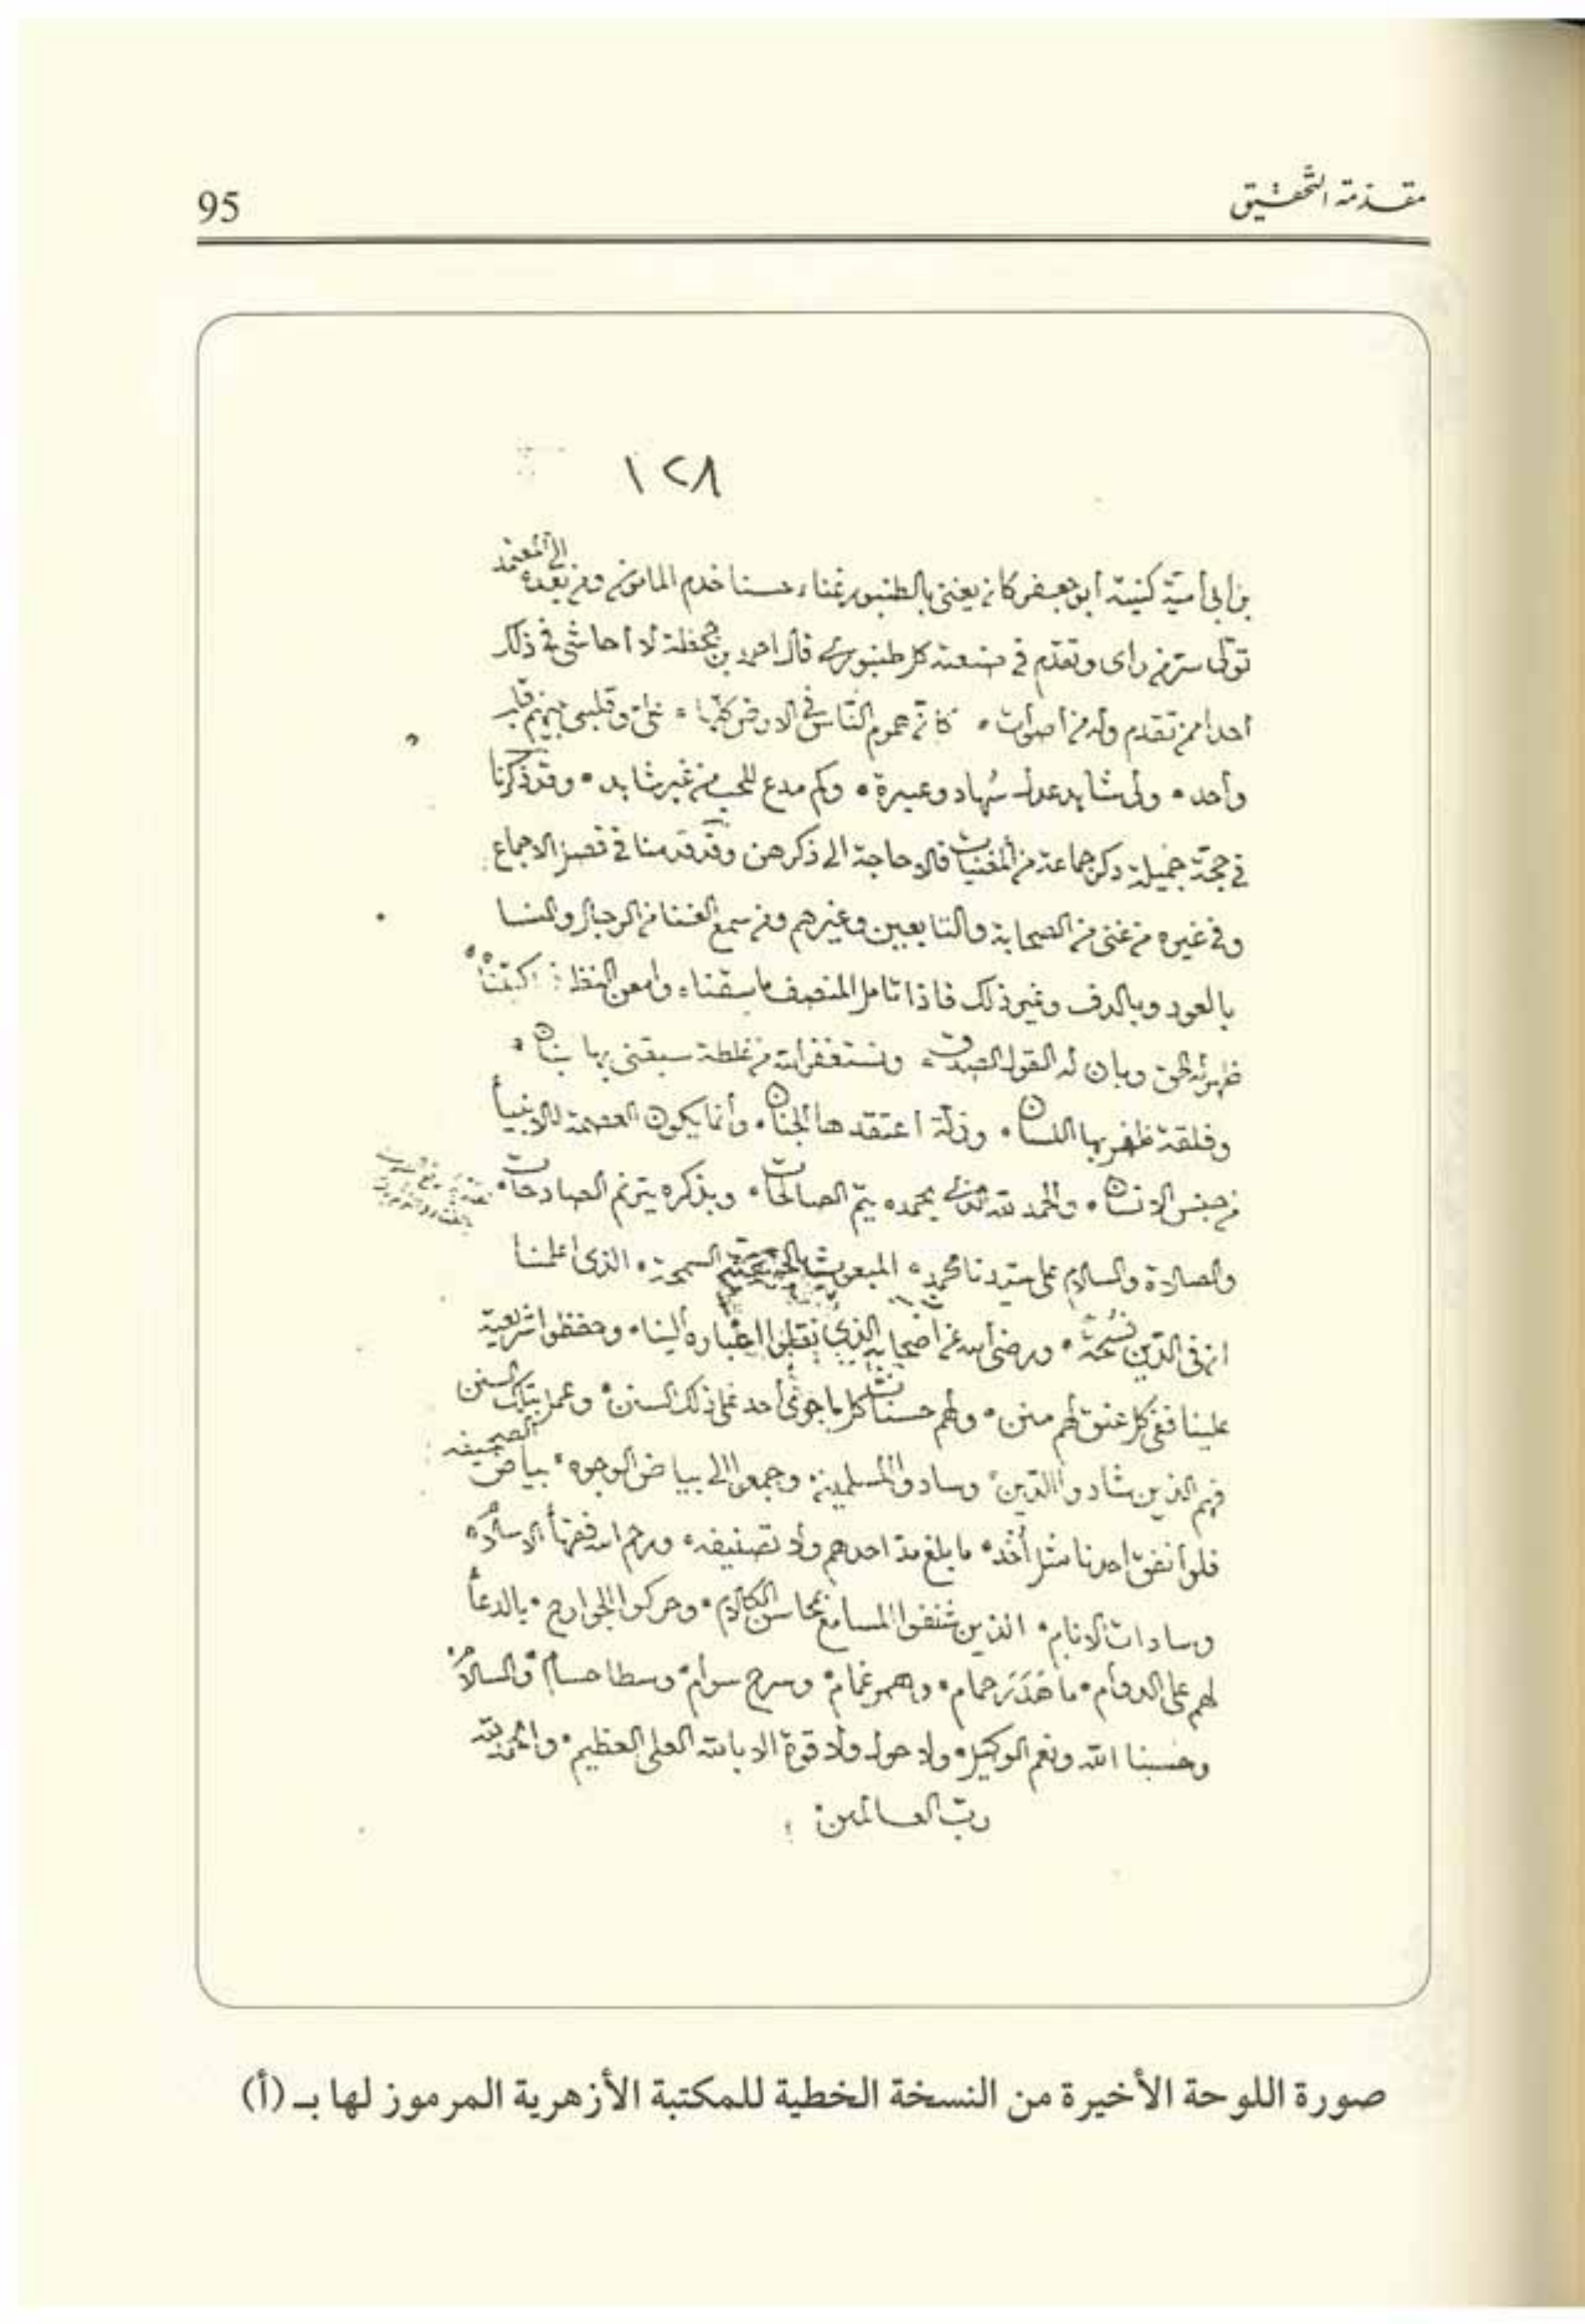 مقدمة التحقيق
95
١٢٨
بن أبي أمية كنيته أبو جعفر كان يغني بالطنبور غناء حسنا خدم المامون ومن بعده الى المعتمد
تولى سر من راى وتقدم في صنعته كل طنبوري قال احمد بن جحظة لا أحاشي في ذلك
أحدا ممن تقدم وله من أصوات كان هموم الناس في الارض كلها على وقلبي بينهم قلب
واحد ولي شاهدا عدل سهاد وعبرة وكم مدع للحب من غير شاهد وقد ذكرنا
في حجة جميلة ذكر جماعة من المغنيات فلا حاجة الى ذكرهن وقد قدمنا في فصل الاجماع
وفي غيره من غنى من الصحابة والتابعين وغيرهم ومن سمع الغنا من الرجال والنسا
بالعود وبالدف وغير ذلك فاذا تامل المنصف ما سقناه وامعن النظر
ظهر له الحق وبان له القول الصدق ونستغفر الله من غلطة سبقني بها بنان
وفلقة ظفر بها اللسان وزلة اعتقدها الجنان وانما يكون العصمة للانبيا
من جنس الانسان والحمد لله الذي بحمده يتم الصالحات وبذكره يترنم الصادحات
والصلاة والسلام على سيدنا محمد المبعوث السمحة الذي اعلمنا
ان في الدين فسحة ورضي الله عن أصحابه الذي نقلوا اخباره الينا وحفظوا شريعته
علينا ففي كل عنق لهم منن ولهم حسنات كل ما جوزي أحد على ذلك السنن وعمل بتلك السنن
فهم الذين شادوا الدين وسادوا المسلمين وجمعوا الى بياض الوجوه بياض الصحيفه
فلو أنفق احدنا مثل أحد ما بلغ مد احدهم ولا نصيفه ورحم الله فقهأ الاسلام
وسادات الانام الذين شنفوا المسامع بمحاسن الكلام وحركوا الجوارح بالدعأ
لهم على الدوام ما هدر حمام وهمر غمام وسرح سوام وسطا حسام والسلام
وحسبنا الله ونعم الوكيل ولا حول ولا قوة الا بالله العلى العظيم والحمد لله
رب العالمين
صورة اللوحة الأخيرة من النسخة الخطية للمكتبة الأزهرية المرموز لها بـ (أ)